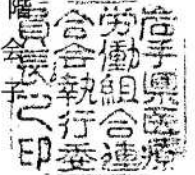 岩手県医療
労働組合連
合会執行委
員長之印